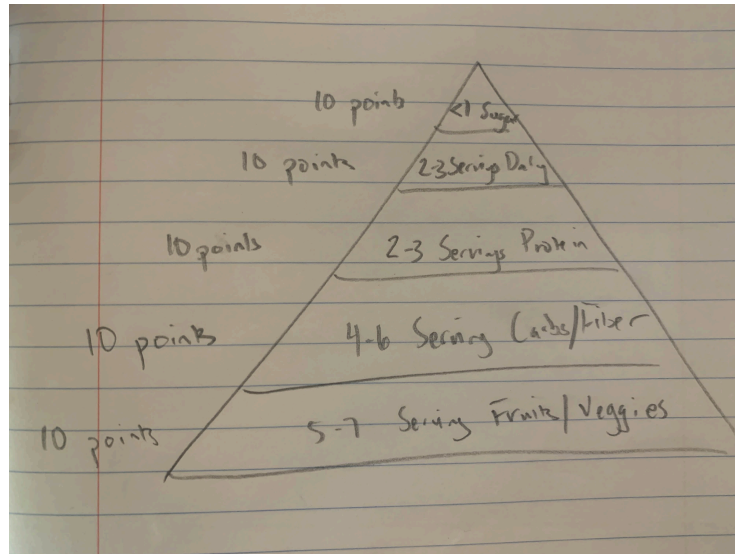 10 points <1 Sugar
10 points 2-3 Serving Daily
10 points 2-3 Servings Protein
10 points 4-6 Serving Carbs/Fiber
10 points 5-7 Serving Fruits/Veggies